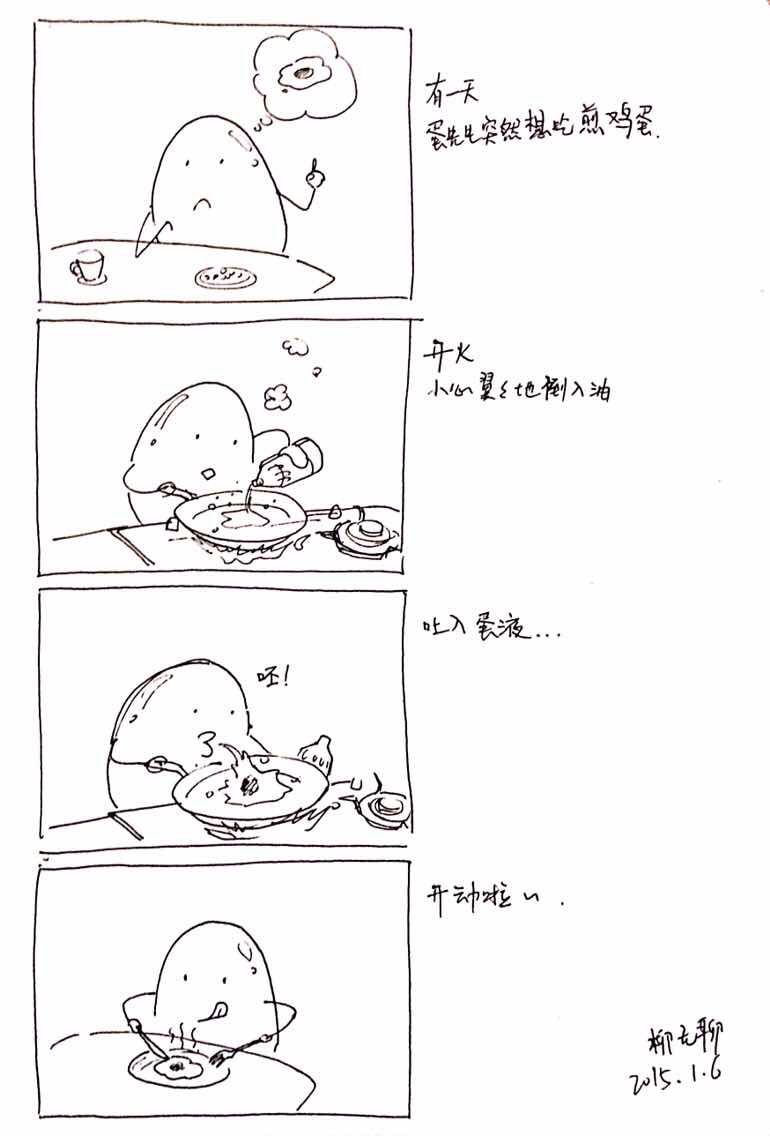 有一天
蛋先生突然想吃煎鸡蛋.
开火
小心翼々地倒入油
吐入蛋液...
呸!
开动啦~.
柳无聊
2015.1.6